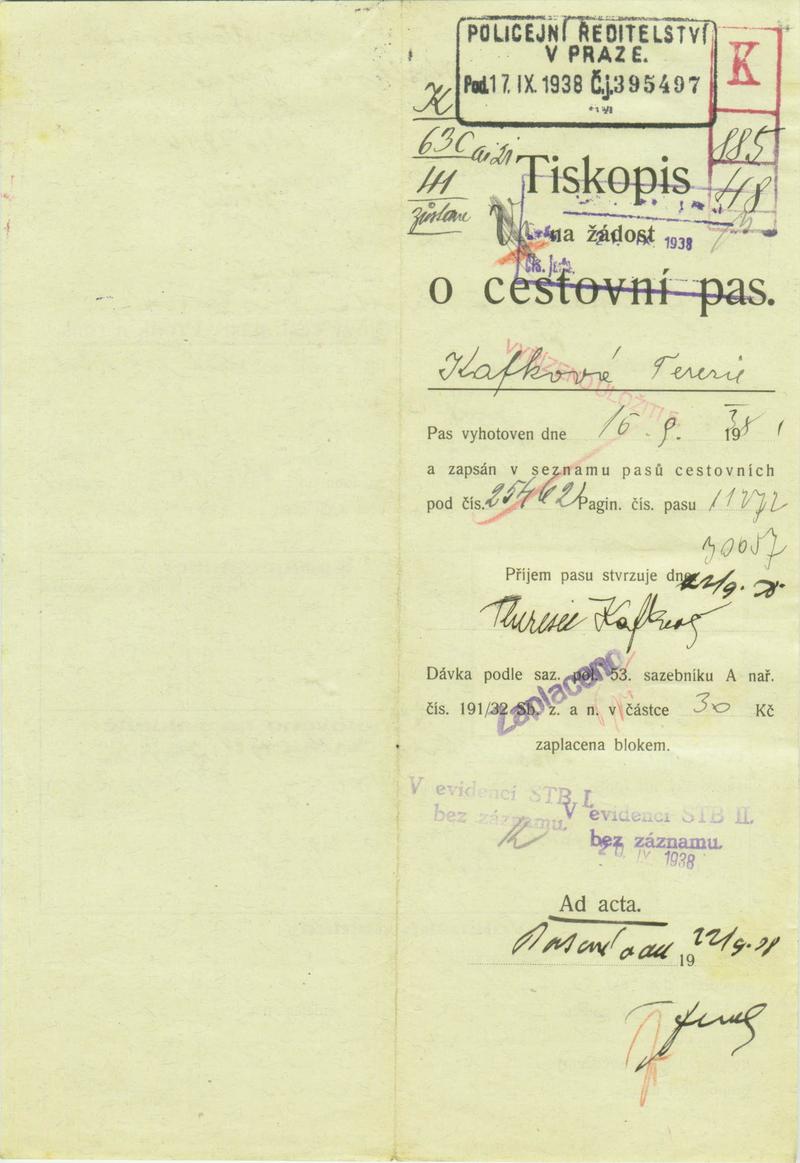 POLICEJNÍ ŘEDITELSTVÍ
V PRAZE.
Pod. 17. IX. 1938 Č.j. 395497
K
K
630
885
111
48
zůstane
Tiskopis
na žádost
IX 1938
o cestovní pas.
Kafková Terezie
Pas vyhotoven dne 16. 9. 1938
a zapsán v seznamu pasů cestovních
pod čís. 25462 Pagin. čís. pasu
30057
Příjem pasu stvrzuje dne 22/9. 38.
Kafková
Dávka podle saz. pol. 53. sazebníku A nař.
čís. 191/32 Sb. z. a n. v částce 30 Kč
Zaplaceno
zaplacena blokem.
V evidenci STB I.
bez záznamu.
V evidenci STB II.
bez záznamu.
20. IX 1938
Ad acta.
19 22/9. 38